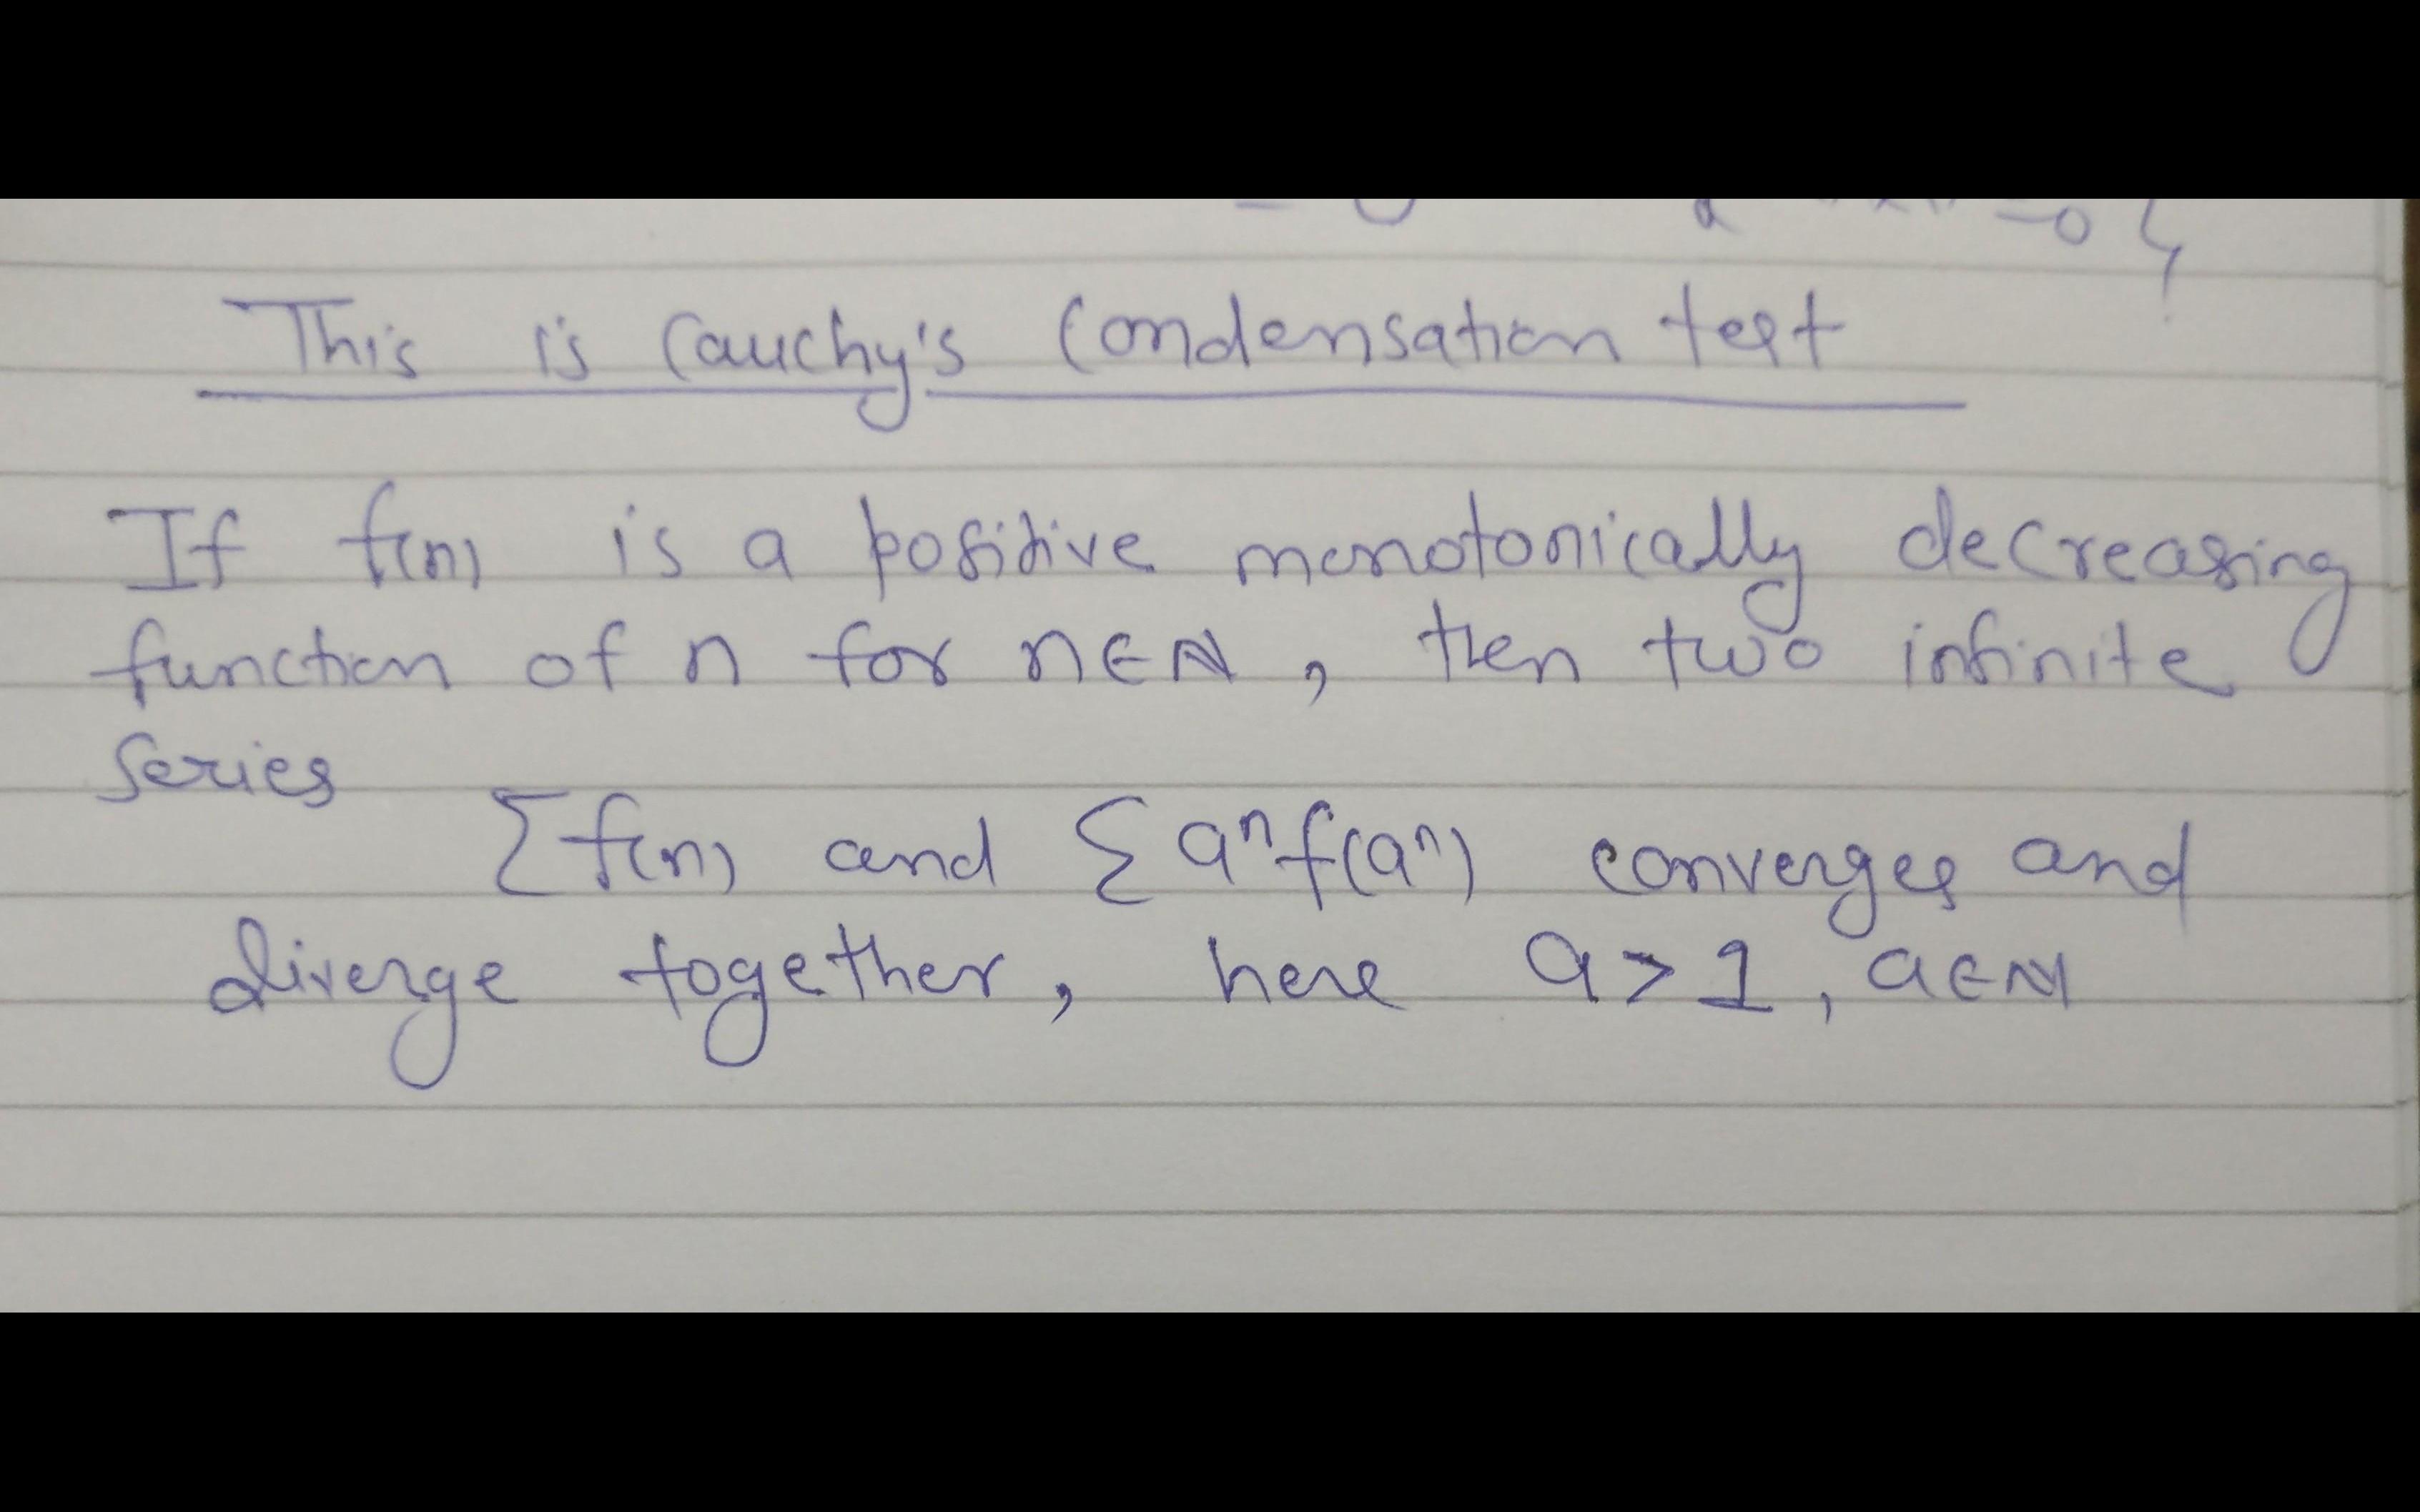 This is Cauchy's Condensation test
If f(n) is a positive monotonically decreasing
function of n for n∈ℕ, then two infinite
series
Σf(n) and Σaⁿf(aⁿ) converges and
diverge together, here a>1, a∈ℕ